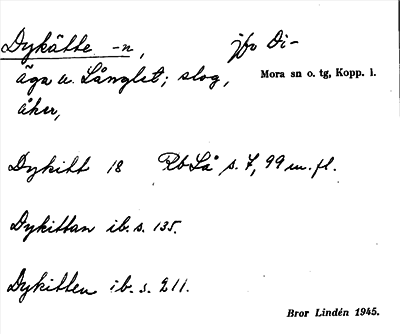 Dykätte -n, jfr Di-
äga u. Långlet; slog, Mora sn o. tg, Kopp. l.
åker,
Dykitt 18 RbLå s. 7, 99 m. fl.
Dykittan ib. s. 135.
Dykitten ib. s. 211.
Bror Lindén 1945.